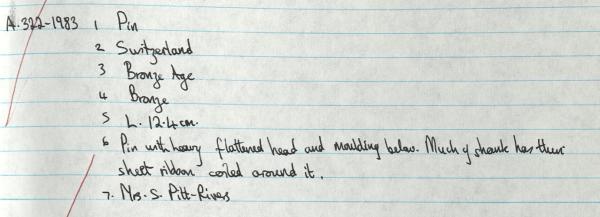 A.322-1983 1 Pin
2 Switzerland
3 Bronze Age
4 Bronze
5 L. 12.4cm.
6 Pin with heavy flattened head and moulding below. Much of shank has
sheet ribbon coiled around it.
7. Mrs. S. Pitt-Rivers